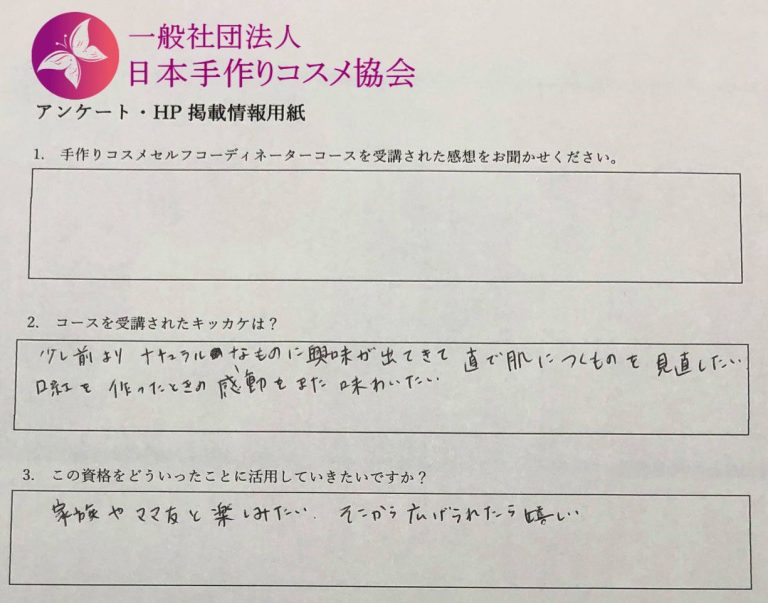 一般社団法人
日本手作りコスメ協会
アンケート・HP 掲載情報用紙
1. 手作りコスメセルフコーディネーターコースを受講された感想をお聞かせください。
2. コースを受講されたキッカケは？
少し前より ナチュラルなものに興味が出てきて 直で肌につくものを 見直したい
口紅を 作ったときの 感動をまた 味わいたい
3. この資格をどういったことに活用していきたいですか？
家族やママ友と楽しみたい. そこから広げられたら嬉しい